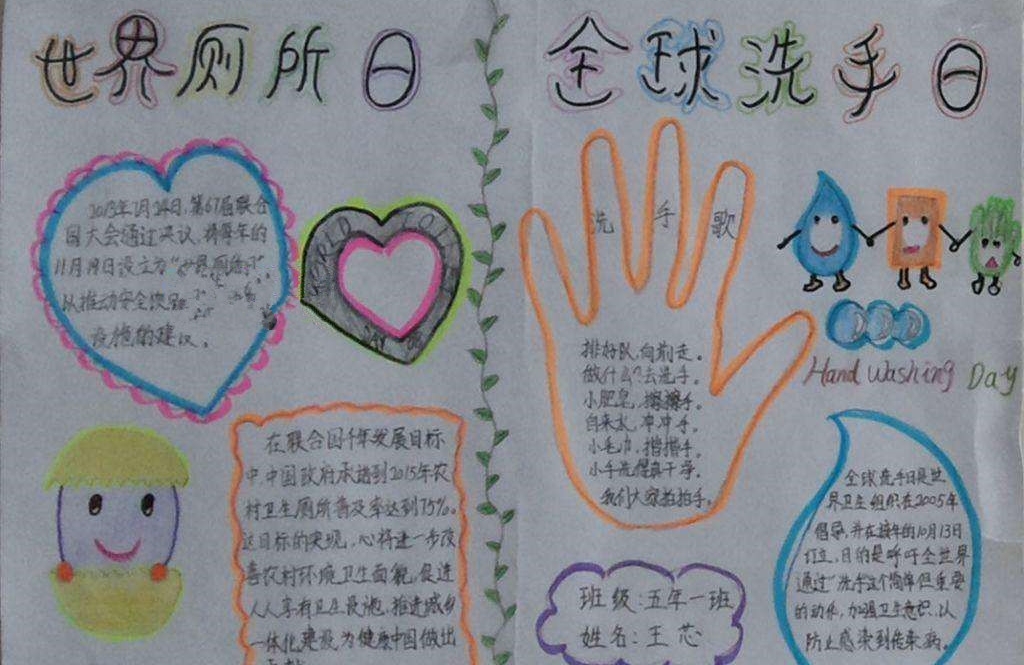 世界厕所日
2013年7月24日,第67届联合
国大会通过决议,将每年的
11月19日设立为"世界厕所日"。
以推动安全饮
设施的建议。
WORLD TOIL
DAY
在联合国千年发展目标
中,中国政府承诺到2015年农
村卫生厕所普及率达到75%。
这目标的实现,心将进一步改
善农村环境卫生面貌,促进
人人享有卫生设施,推进城乡
一体化建设为健康中国做出
全球洗手日
洗手歌
排好队,向前走。
做什么?去洗手。
小肥皂,擦擦手。
自来水,冲冲手。
小毛巾,揩揩手。
小手洗得真干净。
我们大家拍拍手。
Hand washing Day
全球洗手日是世
界卫生组织在2005年
倡导,并在每年的10月13日
订立,目的是呼吁全世界
通过"洗手这个简单但重要
的动作,加强卫生意识,以
防止感染到传染病。
班级:五年一班
姓名:王芯